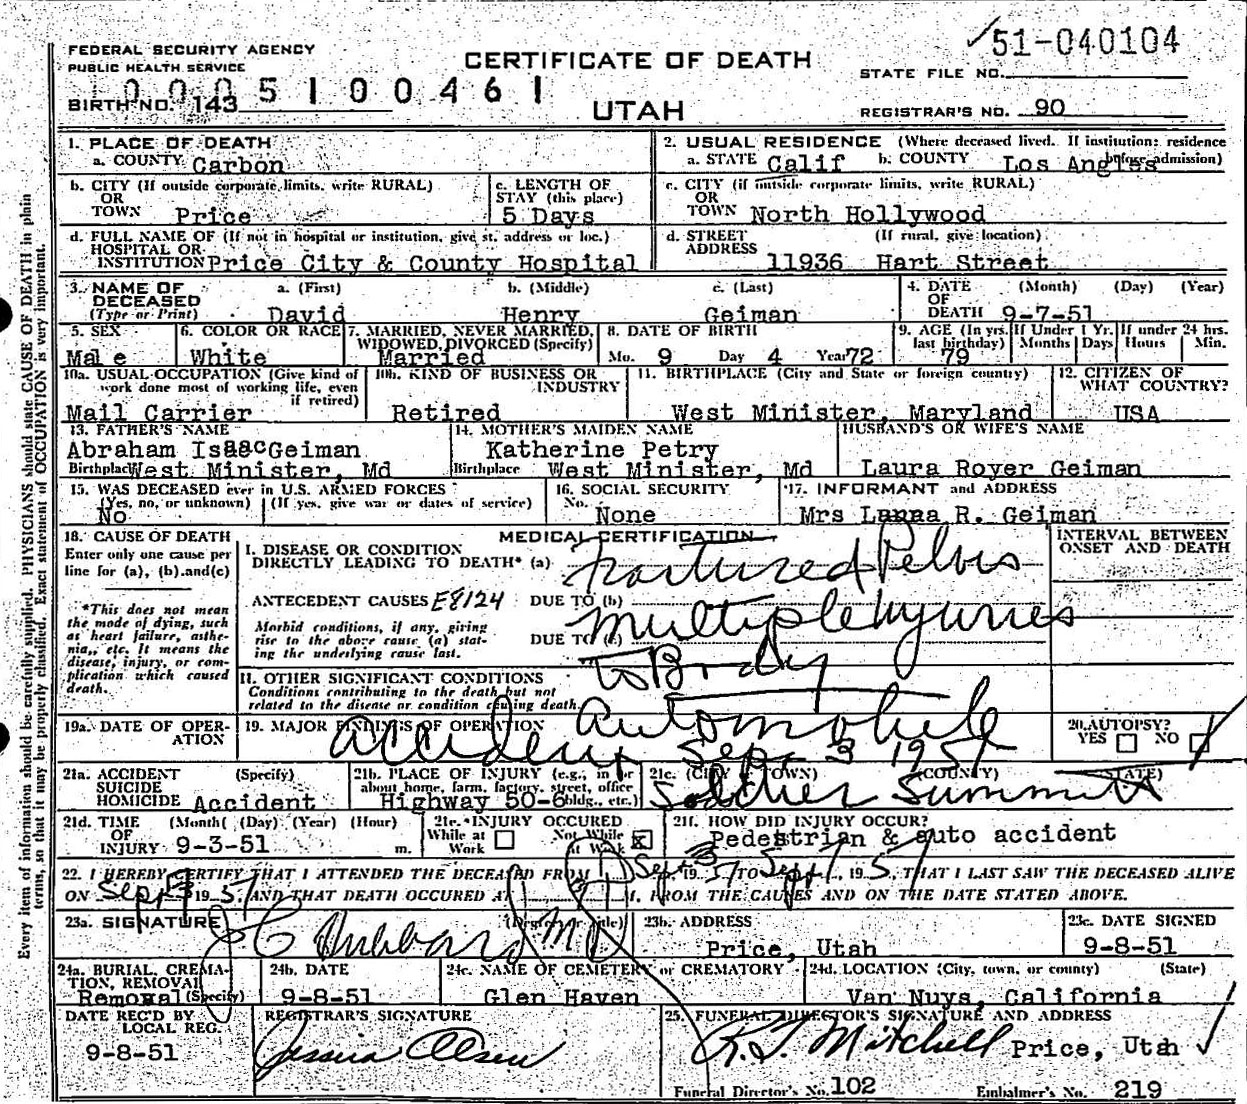 ✓51-040104
FEDERAL SECURITY AGENCY
PUBLIC HEALTH SERVICE
CERTIFICATE OF DEATH
STATE FILE NO.
0005100461
BIRTH NO. 143
UTAH
REGISTRAR'S NO. 90
1. PLACE OF DEATH
a. COUNTY Carbon
2. USUAL RESIDENCE (Where deceased lived. If institution: residence before admission)
a. STATE Calif b. COUNTY Los Angles
b. CITY (If outside corporate limits, write RURAL)
OR
TOWN Price
c. LENGTH OF
STAY (this place)
5 Days
c. CITY (if outside corporate limits, write RURAL)
OR
TOWN North Hollywood
d. FULL NAME OF (If not in hospital or institution, give st. address or loc.)
HOSPITAL OR
INSTITUTION Price City & County Hospital
d. STREET (If rural, give location)
ADDRESS
11936 Hart Street
3. NAME OF DECEASED
(Type or Print)
a. (First) b. (Middle) c. (Last)
David Henry Geiman
4. DATE OF DEATH (Month) (Day) (Year)
9-7-51
5. SEX
Male
6. COLOR OR RACE
White
7. MARRIED, NEVER MARRIED,
WIDOWED, DIVORCED (Specify)
Married
8. DATE OF BIRTH
Mo. 9 Day 4 Year 72
9. AGE (In yrs. last birthday)
79
If Under 1 Yr.
Months Days
If under 24 hrs.
Hours Min.
10a. USUAL OCCUPATION (Give kind of
work done most of working life, even
if retired)
Mail Carrier
10b. KIND OF BUSINESS OR
INDUSTRY
Retired
11. BIRTHPLACE (City and State or foreign country)
West Minister, Maryland
12. CITIZEN OF
WHAT COUNTRY?
USA
13. FATHER'S NAME
Abraham Isaac Geiman
Birthplace West Minister, Md
14. MOTHER'S MAIDEN NAME
Katherine Petry
Birthplace West Minister, Md
HUSBAND'S OR WIFE'S NAME
Laura Royer Geiman
15. WAS DECEASED ever in U.S. ARMED FORCES
(Yes, no, or unknown) (If yes, give war or dates of service)
No
16. SOCIAL SECURITY
No. None
17. INFORMANT and ADDRESS
Mrs R. Geiman
18. CAUSE OF DEATH
Enter only one cause per
line for (a), (b).and(c)
*This does not mean
the mode of dying, such
as heart failure, asthe-
nia, etc. It means the
disease, injury, or com-
plication which caused
death.
MEDICAL CERTIFICATION
INTERVAL BETWEEN
ONSET AND DEATH
I. DISEASE OR CONDITION
DIRECTLY LEADING TO DEATH* (a) Fractured Pelvis
ANTECEDENT CAUSES E8124 DUE TO (b)
Multiple Injuries
Morbid conditions, if any, giving
rise to the above cause (a) stat-
ing the underlying cause last.
DUE TO (c)
to Body
II. OTHER SIGNIFICANT CONDITIONS
Conditions contributing to the death but not
related to the disease or condition causing death.
Automobile
19a. DATE OF OPER-
ATION
19. MAJOR FINDINGS OF OPERATION
accident Sept 3 1951
20. AUTOPSY?
YES NO ✓
21a. ACCIDENT (Specify)
SUICIDE
HOMICIDE Accident
21b. PLACE OF INJURY (e.g., in or
about home, farm, factory, street, office
bldg., etc.)
Highway 50-6
21c. (CITY or TOWN) (COUNTY) (STATE)
Soldier Summit
21d. TIME (Month) (Day) (Year) (Hour)
OF
INJURY 9-3-51 m.
21e. INJURY OCCURED
While at Work
Not While at Work X
21f. HOW DID INJURY OCCUR?
Pedestrian & auto accident
22. I HEREBY CERTIFY THAT I ATTENDED THE DECEASED FROM Sept 3 19 51 TO Sept 7, 19 51, THAT I LAST SAW THE DECEASED ALIVE
ON Sept 3 19 51 AND THAT DEATH OCCURED AT M. FROM THE CAUSES AND ON THE DATE STATED ABOVE.
23a. SIGNATURE (Degree or title)
Hubbard MD
23b. ADDRESS
Price, Utah
23c. DATE SIGNED
9-8-51
24a. BURIAL, CREMA-
TION, REMOVAL
Removal (Specify)
24b. DATE
9-8-51
24c. NAME OF CEMETERY or CREMATORY
Glen Haven
24d. LOCATION (City, town, or county) (State)
Van Nuys, California
DATE REC'D BY
LOCAL REG.
9-8-51
REGISTRAR'S SIGNATURE
Jessica Olsen
25. FUNERAL DIRECTOR'S SIGNATURE AND ADDRESS
R. T. Mitchell Price, Utah ✓
Funeral Director's No. 102 Embalmer's No. 219
Every item of information should be carefully supplied. PHYSICIANS should state CAUSE OF DEATH in plain
terms, so that it may be properly classified. Exact statement of OCCUPATION is very important.